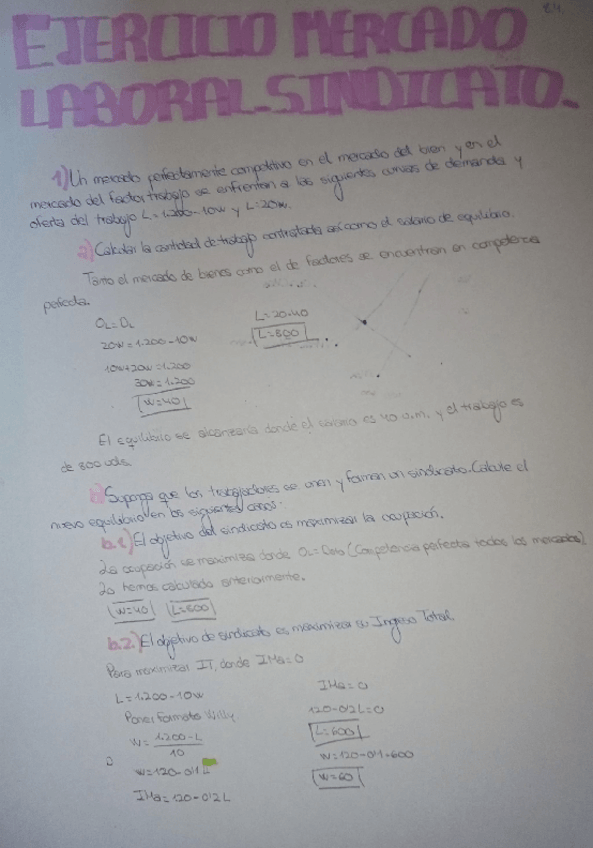 84
EJERCICIO MERCADO
LABORAL-SINDICATO.
1) Un mercado perfectamente competitivo en el mercado del bien y en el
mercado del factor trabajo se enfrentan a las siguientes curvas de demanda y
oferta del trabajo L=1.200-10w y L=20w.
a) Calcular la cantidad de trabajo contratada así como el salario de equilibrio.
Tanto el mercado de bienes como el de factores se encuentran en competencia
perfecta.
OL=DL
20w=1.200-10w
10w+20w=1.200
30w=1.200
w=40
L=20·40
L=800
El equilibrio se alcanzaría donde el salario es 40 u.m. y el trabajo es
de 800 uds.
b) Suponga que los trabajadores se unen y forman un sindicato. Calcule el
nuevo equilibrio en los siguientes casos:
b.1) El objetivo del sindicato es maximizar la ocupación.
La ocupación se maximiza donde OL= (Competencia perfecta todos los mercados)
Lo hemos calculado anteriormente.
w=40 L=800
b.2) El objetivo de sindicato es maximizar su Ingreso Total
Para maximizar IT, donde IMa=0
L=1.200-10w
Poner Formato Willy
w=1.200-L
10
w=120-0'1L
IMa=120-0'2L
IMa=0
120-0'2L=0
L=600
w=120-0'1·600
w=60